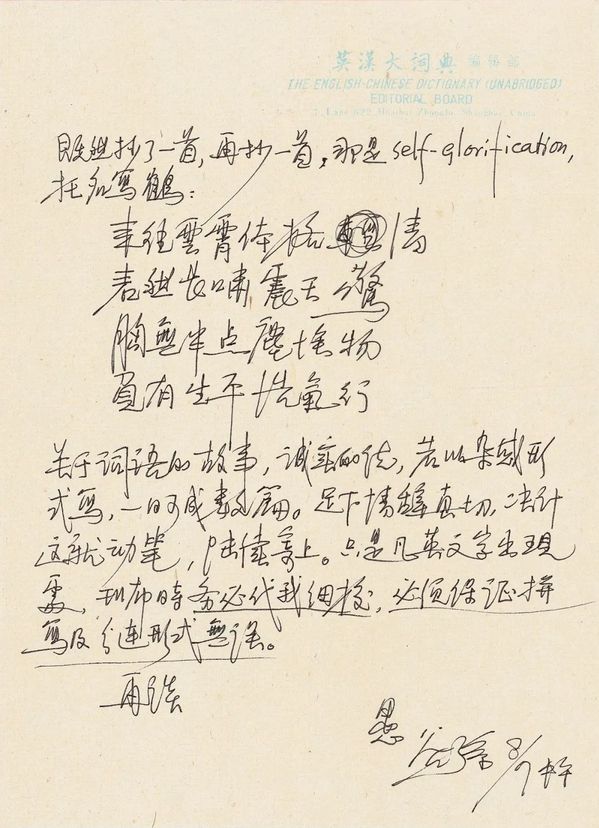 英漢大词典 編輯部
THE ENGLISH-CHINESE DICTIONARY (UNABRIDGED)
EDITORIAL BOARD
7, Lane 622 Huaihai Zhonglu, Shanghai, China
既然抄了一首,再抄一首,那是self-glorification,
托名写鶴:
来往雲霄体格清
轰然长啸震天驚
胸無半点塵埃物
負有生平浩氣行
关于词语的故事,诚如所说,若以杂感形
式寫,一日可成数篇。足下情辞真切,决计
这就动笔,陆续寄上。只是凡英文字出現
處,刊布時务必代我细校,必须保证拼
寫及分连形式無误。
再谈
愚
谷孫 8/7